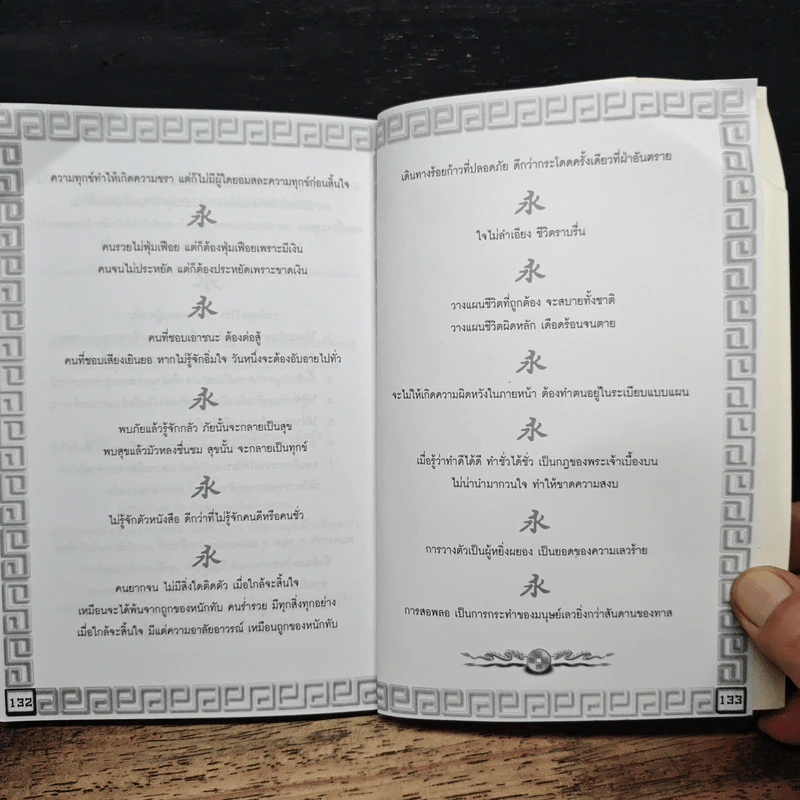 ความทุกข์ทำให้เกิดความชรา แต่ก็ไม่มีผู้ใดยอมสละความทุกข์ก่อนสิ้นใจ
永
คนรวยไม่ฟุ่มเฟือย แต่ก็ต้องฟุ่มเฟือยเพราะมีเงิน
คนจนไม่ประหยัด แต่ก็ต้องประหยัดเพราะขาดเงิน
永
คนที่ชอบเอาชนะ ต้องต่อสู้
คนที่ชอบเสียงเยินยอ หากไม่รู้จักอิ่มใจ วันหนึ่งจะต้องอับอายไปทั่ว
永
พบภัยแล้วรู้จักกลัว ภัยนั้นจะกลายเป็นสุข
พบสุขแล้วมัวหลงชื่นชม สุขนั้น จะกลายเป็นทุกข์
永
ไม่รู้จักตัวหนังสือ ดีกว่าที่ไม่รู้จักคนดีหรือคนชั่ว
永
คนยากจน ไม่มีสิ่งใดติดตัว เมื่อใกล้จะสิ้นใจ
เหมือนจะได้พ้นจากถูกของหนักทับ คนร่ำรวย มีทุกสิ่งทุกอย่าง
เมื่อใกล้จะสิ้นใจ มีแต่ความอาลัยอาวรณ์ เหมือนถูกของหนักทับ
132
เดินทางร้อยก้าวที่ปลอดภัย ดีกว่ากระโดดครั้งเดียวที่ฝ่าอันตราย
永
ใจไม่ลำเอียง ชีวิตราบรื่น
永
วางแผนชีวิตที่ถูกต้อง จะสบายทั้งชาติ
วางแผนชีวิตผิดหลัก เดือดร้อนจนตาย
永
จะไม่ให้เกิดความผิดหวังในภายหน้า ต้องทำตนอยู่ในระเบียบแบบแผน
永
เมื่อรู้ว่าทำดีได้ดี ทำชั่วได้ชั่ว เป็นกฎของพระเจ้าเบื้องบน
ไม่น่านำมากวนใจ ทำให้ขาดความสงบ
永
การวางตัวเป็นผู้หยิ่งผยอง เป็นยอดของความเลวร้าย
永
การสอพลอ เป็นการกระทำของมนุษย์เลวยิ่งกว่าสันดานของทาส
133